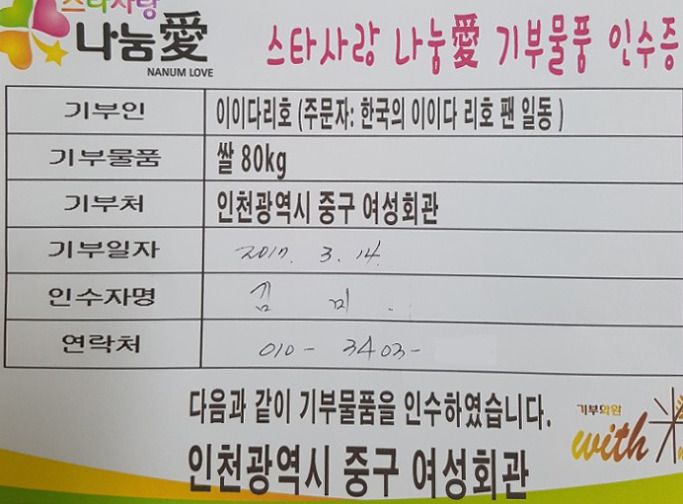 스타사랑
나눔愛
NANUM LOVE
스타사랑 나눔愛 기부물품 인수증
기부인 이이다리호 (주문자: 한국의 이이다 리호 팬 일동 )
기부물품 쌀 80kg
기부처 인천광역시 중구 여성회관
기부일자 2017. 3. 14.
인수자명 김 미
연락처 010 - 3403 -
다음과 같이 기부물품을 인수하였습니다.
기부화환
with 米
인천광역시 중구 여성회관